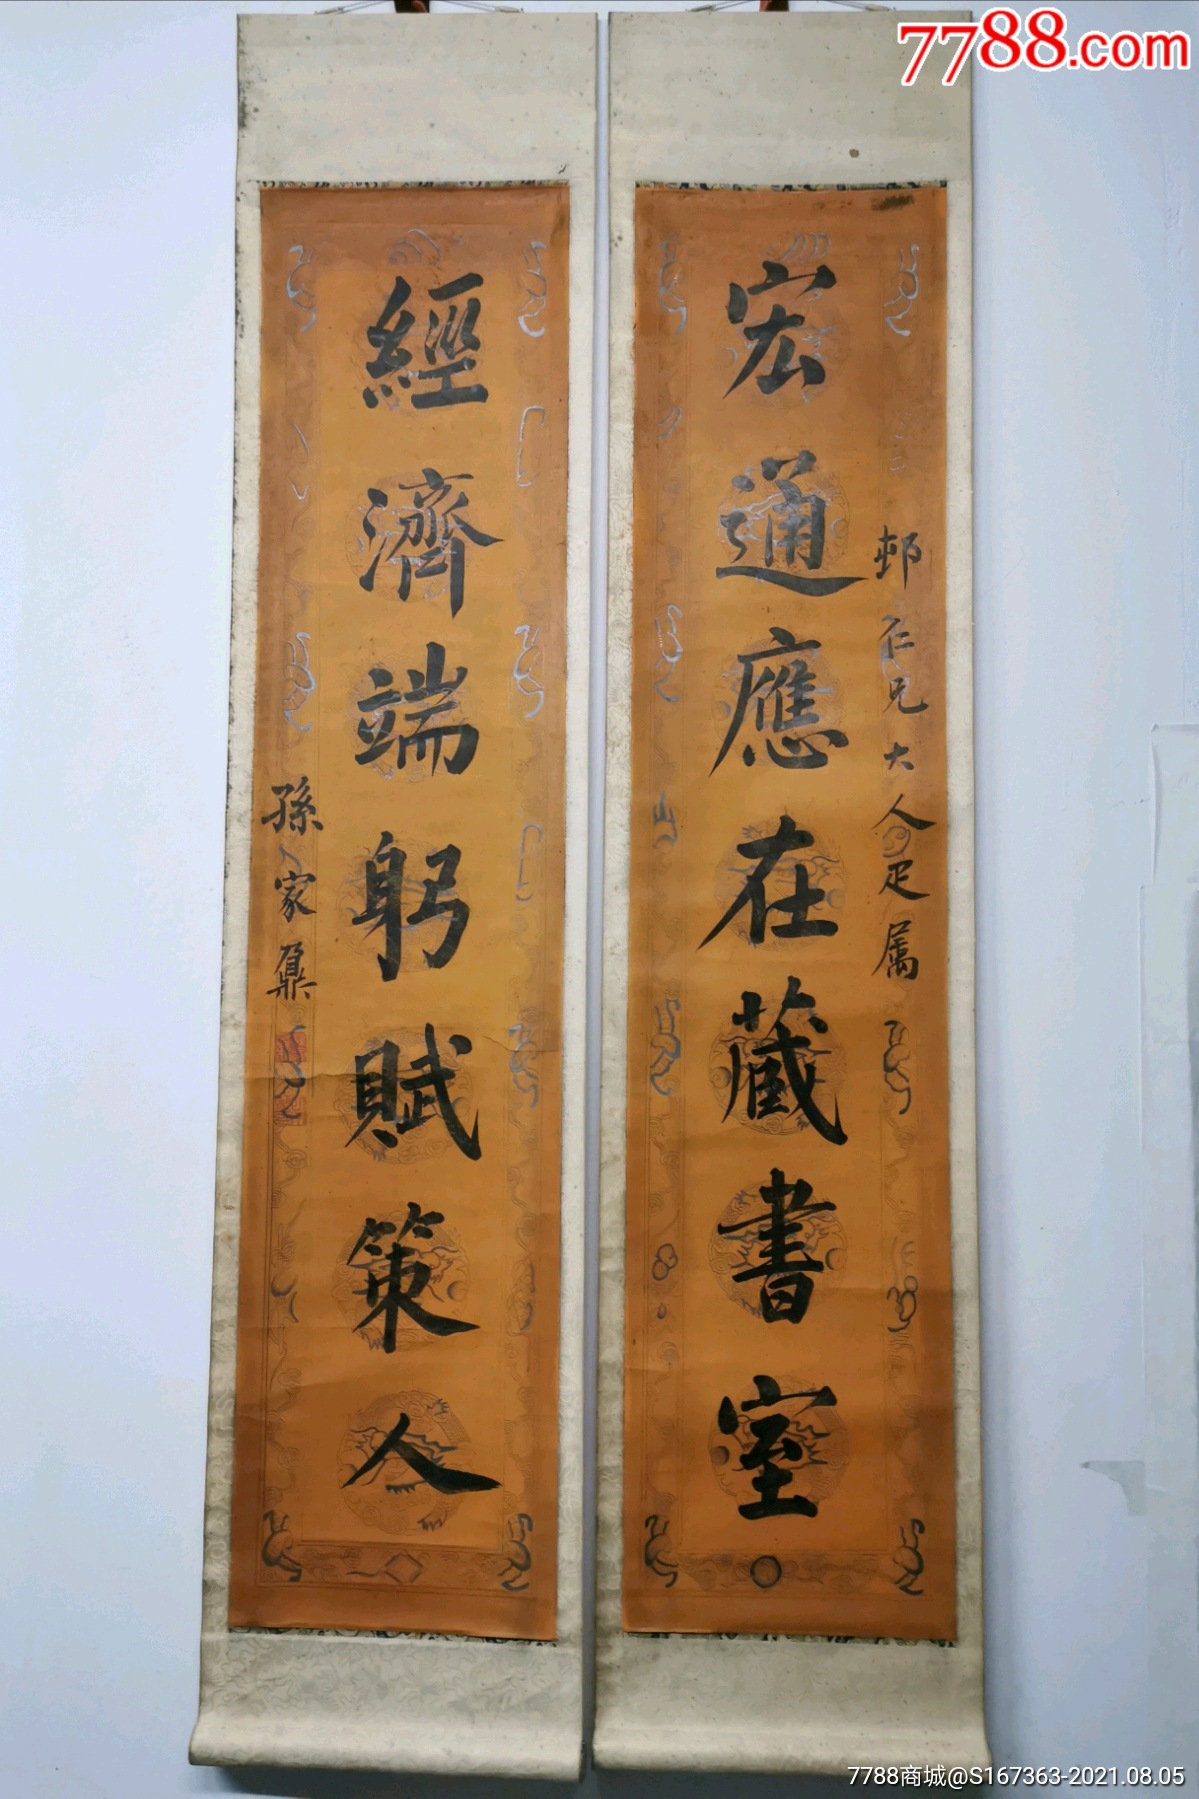 7788.com
宏通應在蔵書室
邨仁兄大人疋属
經濟端躬賦策人
孫家鼐
7788商城@S167363-2021.08.05